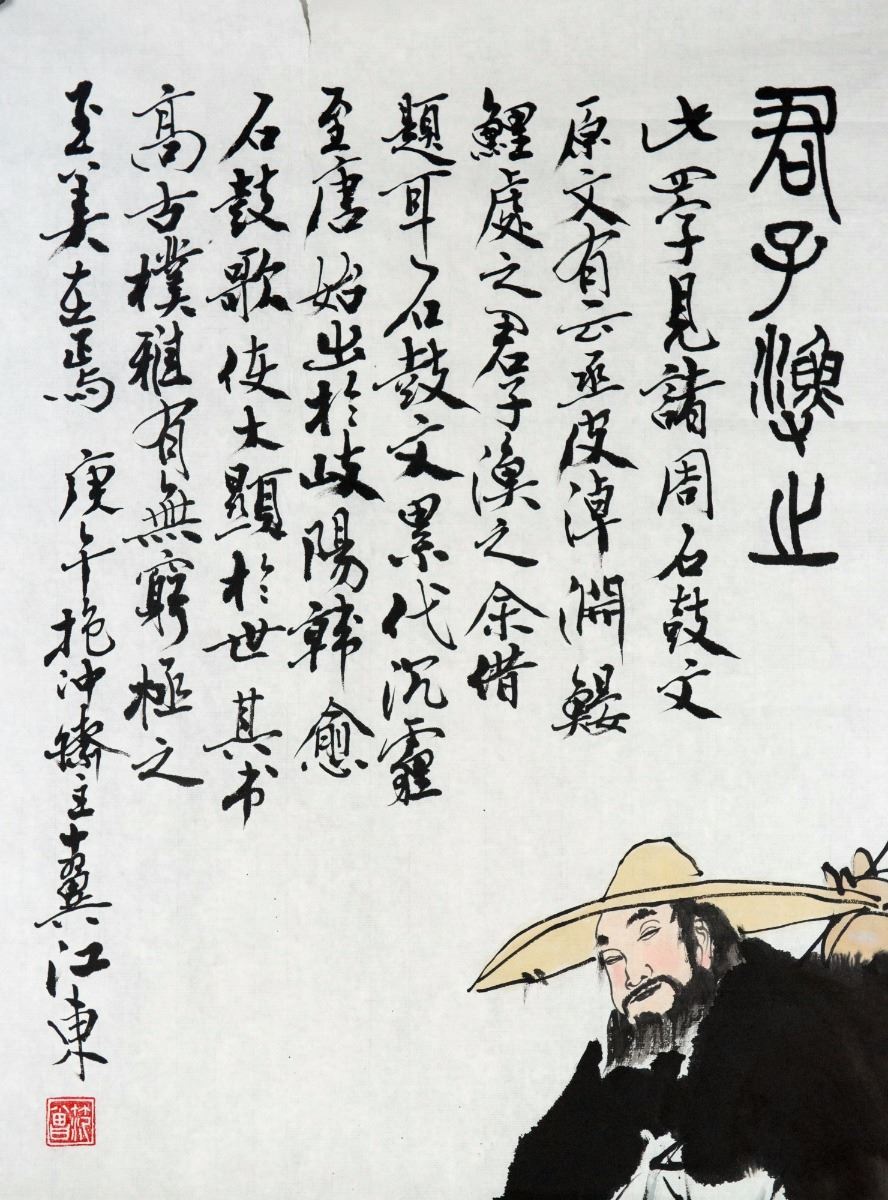 君子漁之
此四字見諸周石鼓文
原文有云丞皮淖淵鰋
鯉處之君子漁之余借
題耳石鼓文累代沉霾
至唐始出於岐陽韓愈
石鼓歌使大顯於世其书
高古樸雅有無窮極之
至美在焉
庚午抱沖齋主十翼江東
范曾